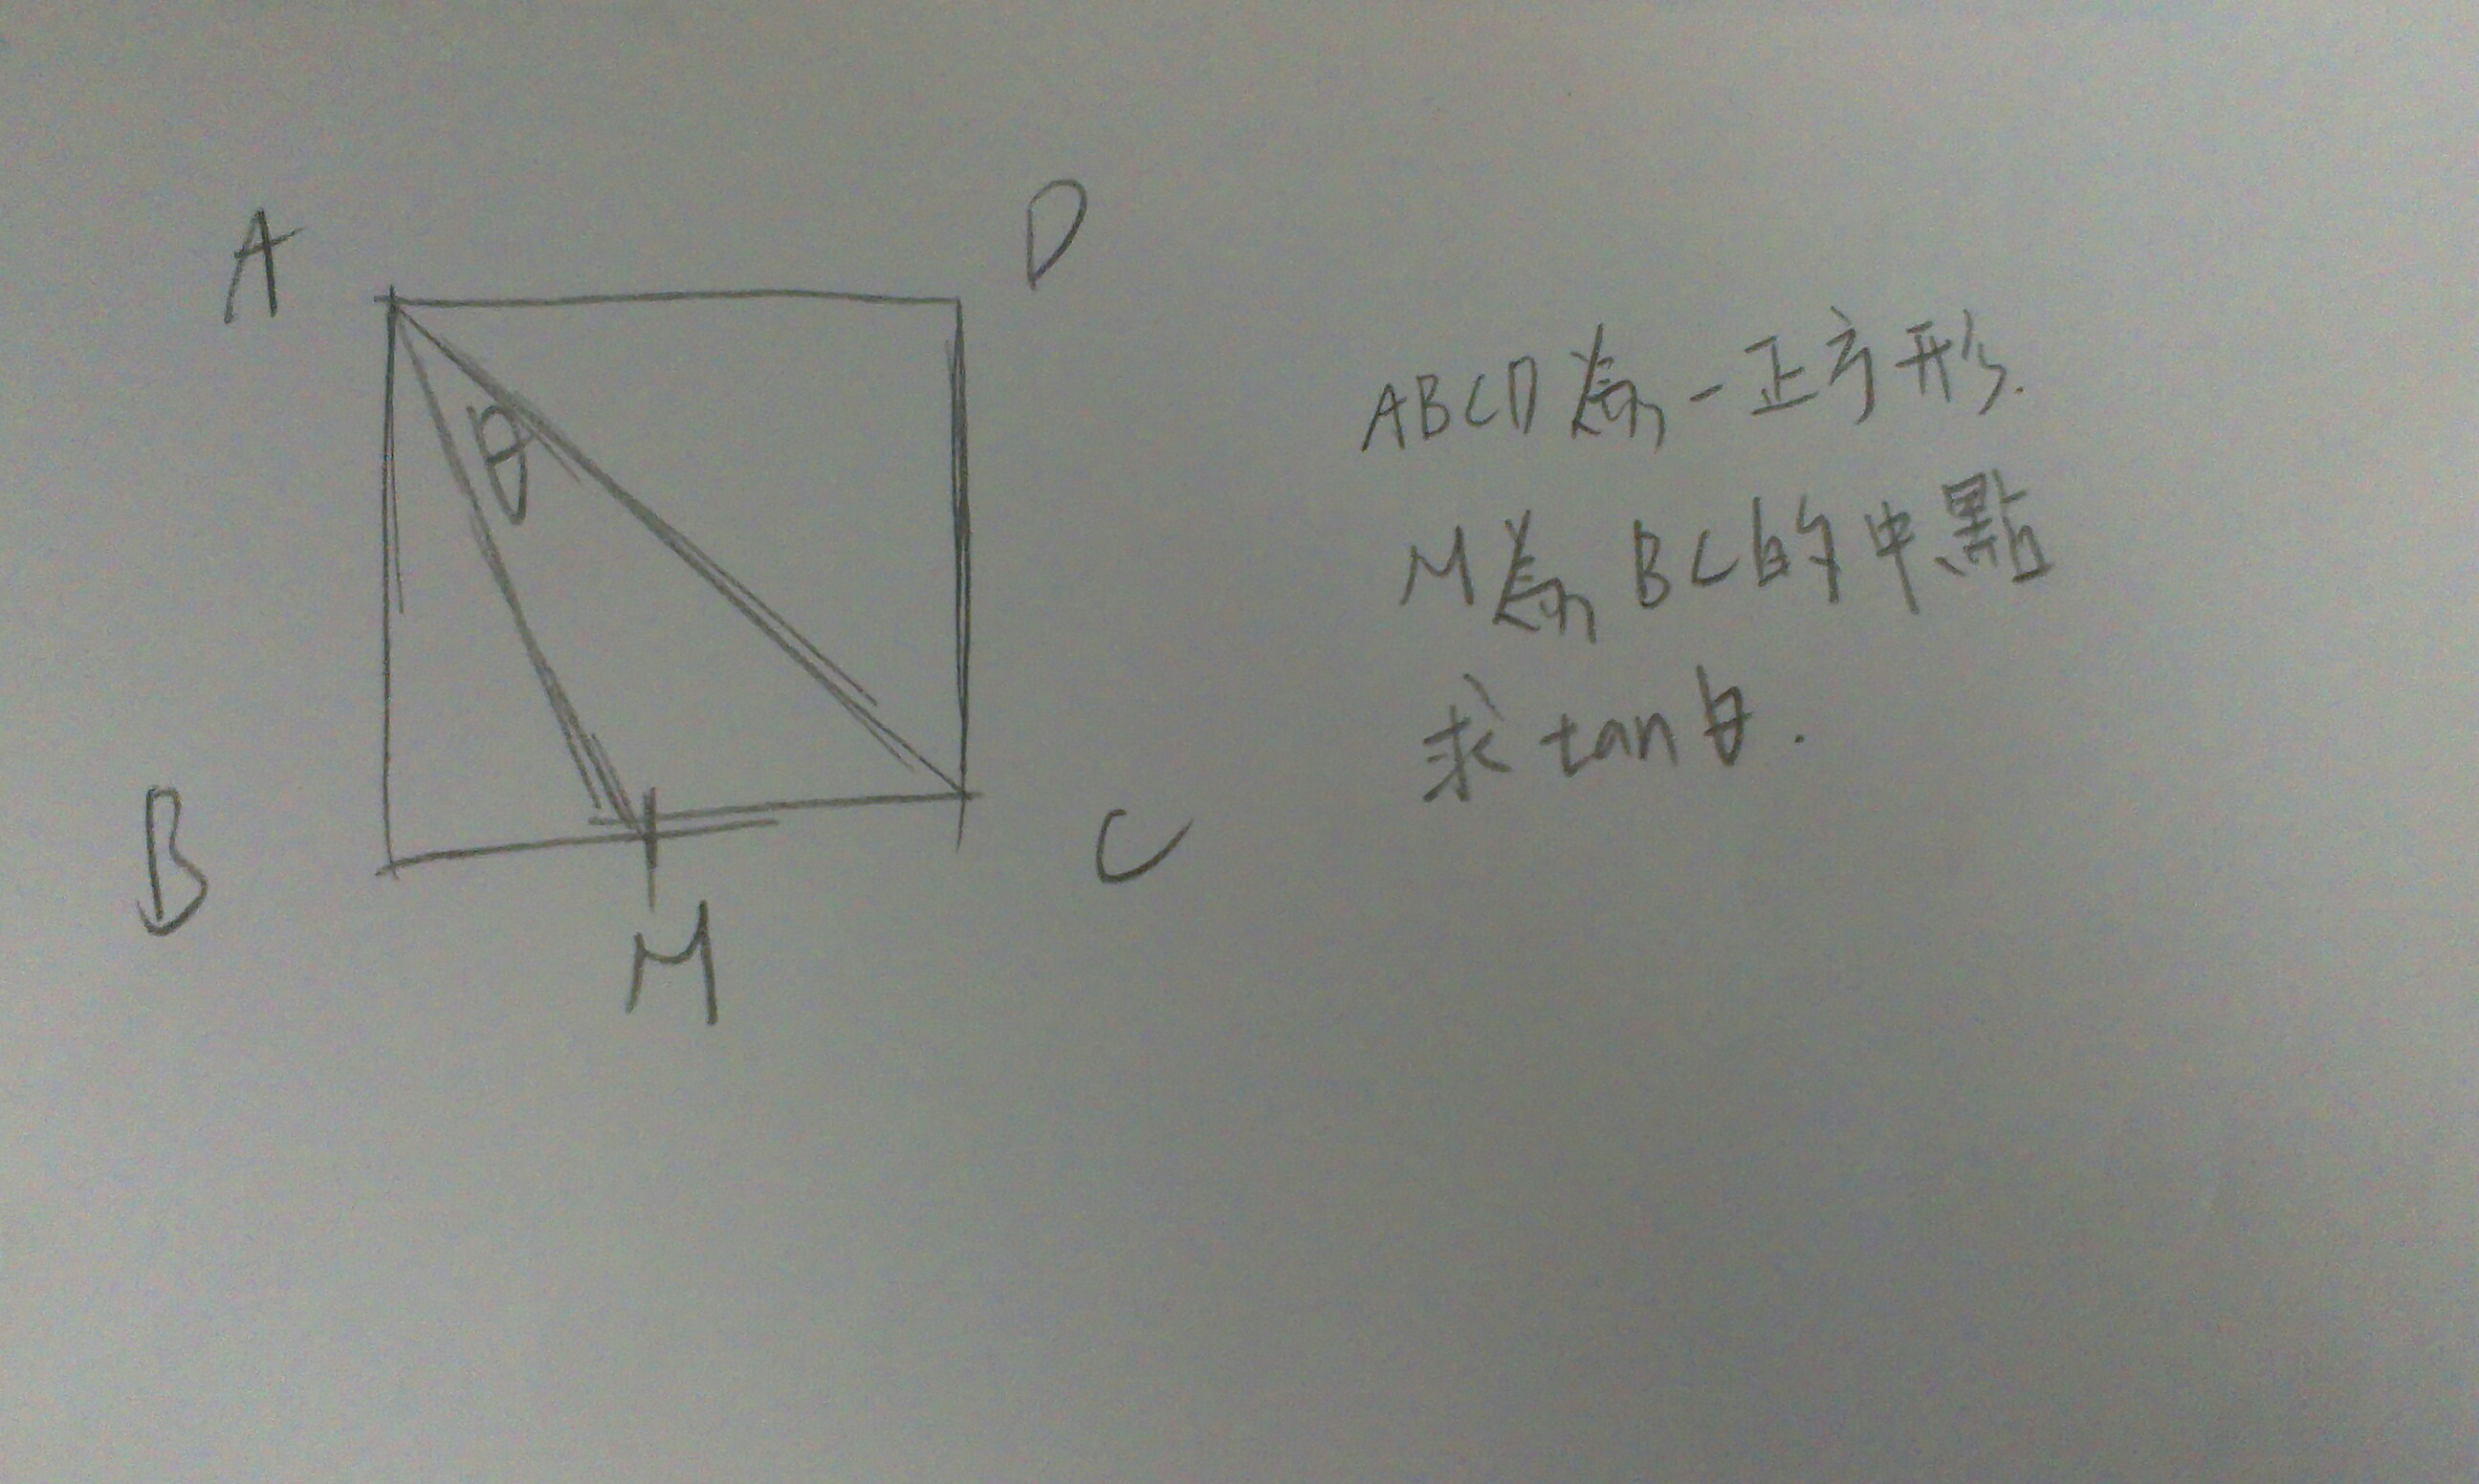 A
D
θ
B
C
M
ABCD為一正方形.
M為BC的中點
求tanθ.